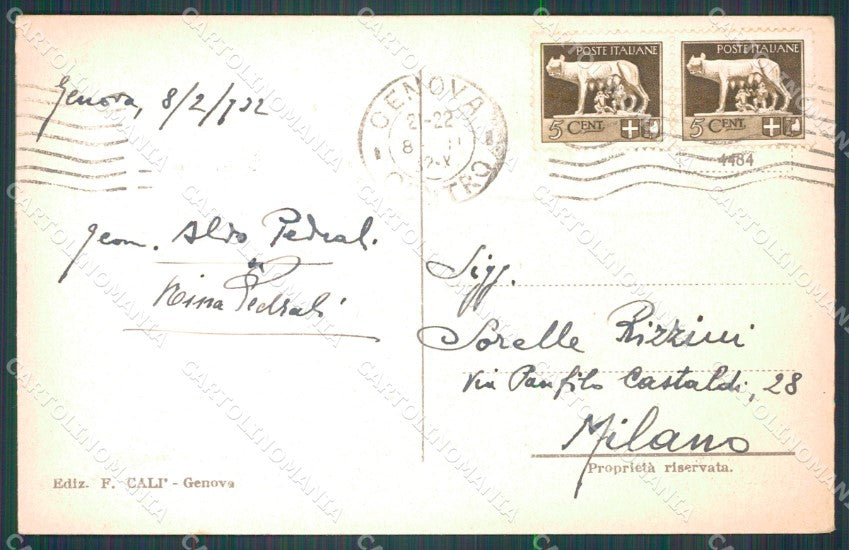 Genova, 8/2/932
geom. Aldo Pedrali
e
Nina Pedrali
Ediz. F. CALI' - Genova
GENOVA
21-22
8 II
32-X
CENTRO
POSTE ITALIANE
5 CENT.
POSTE ITALIANE
5 CENT.
4484
Sigg.
Sorelle Rizzini
Via Panfilo Castaldi, 28
Milano
Proprietà riservata.
CARTOLINOMANIA